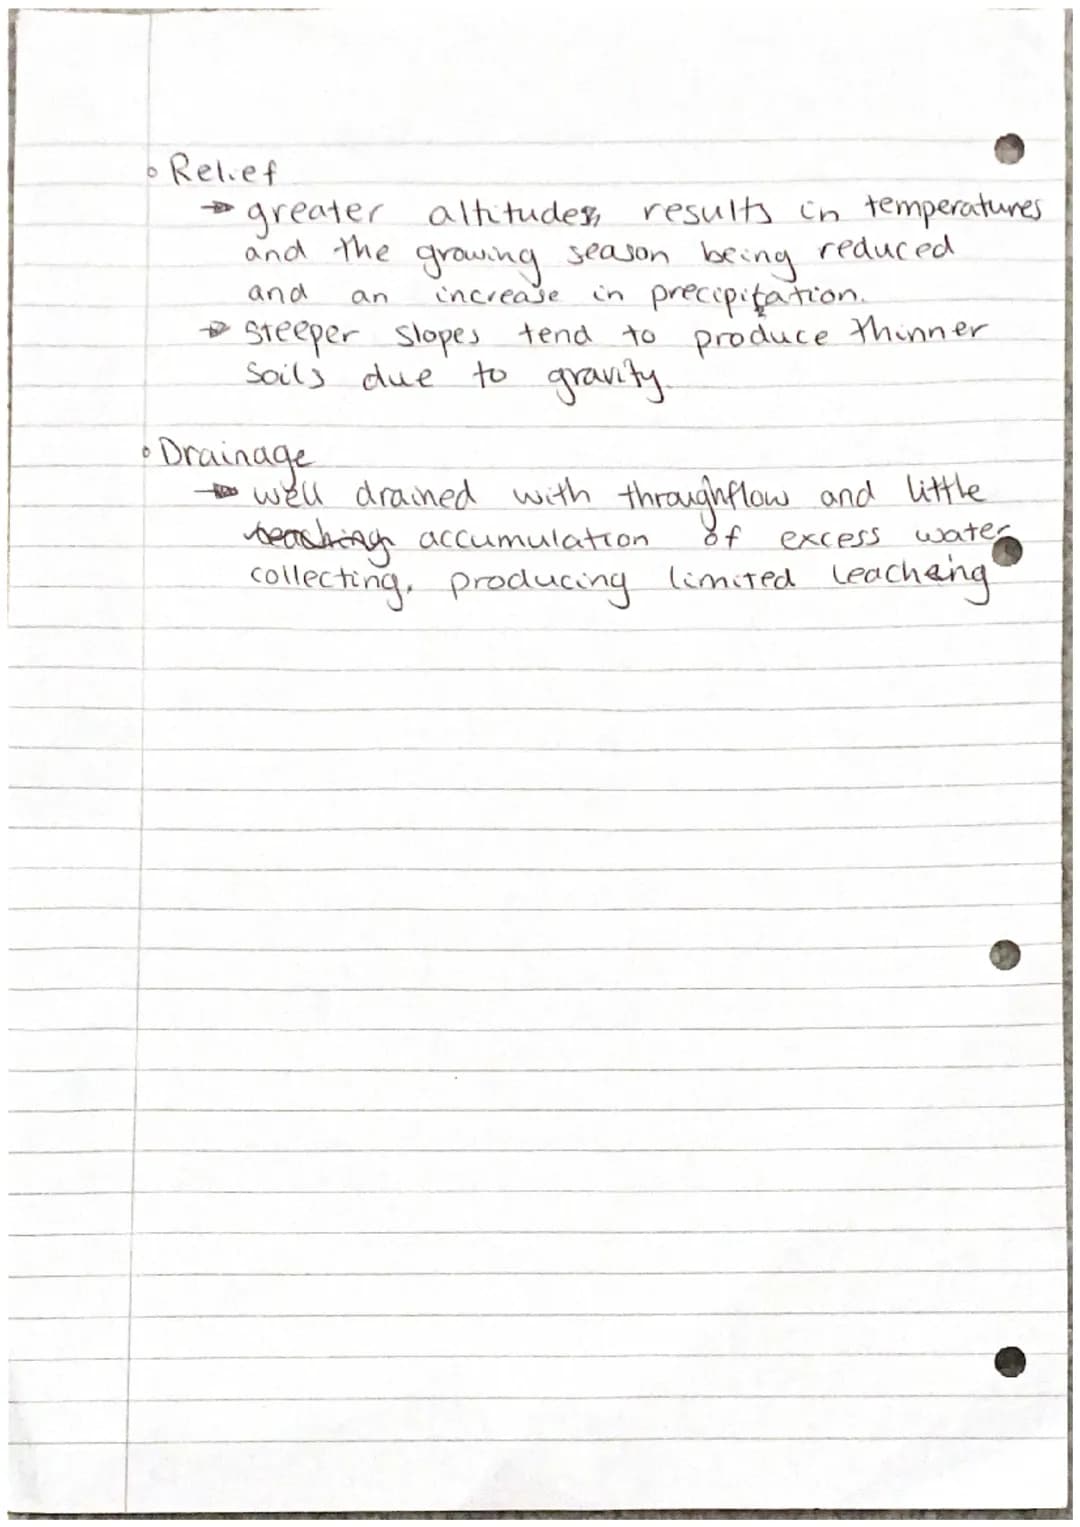 • Relief
→ greater altitudes, results in temperatures
and the growing season being reduced
and an increase in precipitation.
→ Steeper slopes tend to produce thinner
soils due to gravity.
• Drainage
→ well drained with throughflow and little
accumulation of excess water
collecting, producing limited leaching